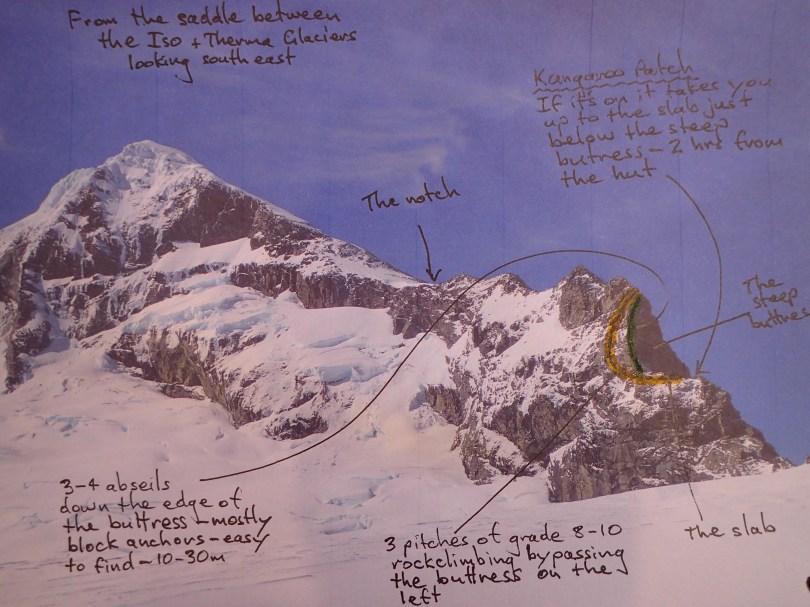 From the saddle between
the Iso + Therma Glaciers
looking south east
Kangaroo Patch
If it's on it takes you
up to the slab just
below the steep
butress – 2 hrs from
the hut
The notch
The
steep
buttres
3-4 abseils
down the edge of
the buttress – mostly
block anchors – easy
to find – 10-30m
3 pitches of grade 8-10
rockclimbing bypassing
the buttress on the
left
The slab